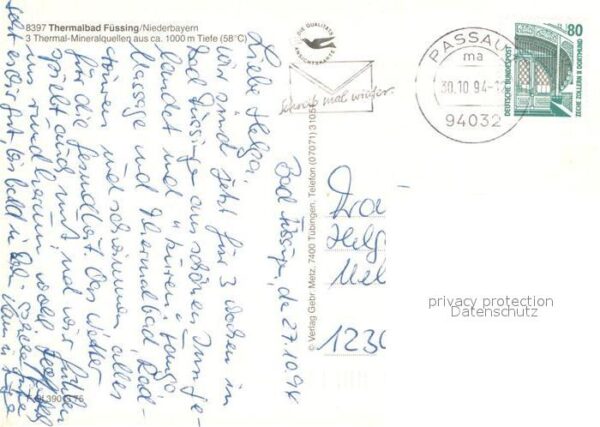 8397 Thermalbad Füssing/Niederbayern
3 Thermal-Mineralquellen aus ca. 1000 m Tiefe (58°C)
DIE QUALITÄTS
ANSICHTSKARTE
Schreib mal wieder.
PASSAU
ma
30.10.94-1
94032
80
DEUTSCHE BUNDESPOST
ZECHE ZOLLERN II DORTMUND
Bad Füssing, de 27.10.94
Liebe Helga,
wir sind jetzt für 3 Wochen in
Bad Füssing aus schönen
landet und "kuren".
Massage und Thermalbad Rad-
fahren und schwimmen, alles
für die Gesundheit. Das Wetter
spielt auch mit, und wir fühlen
uns rundherum wohl.
© Verlag Gebr. Metz, 7400 Tübingen, Telefon (07071) 3105
Frau
Helg
1230
privacy protection
Datenschutz